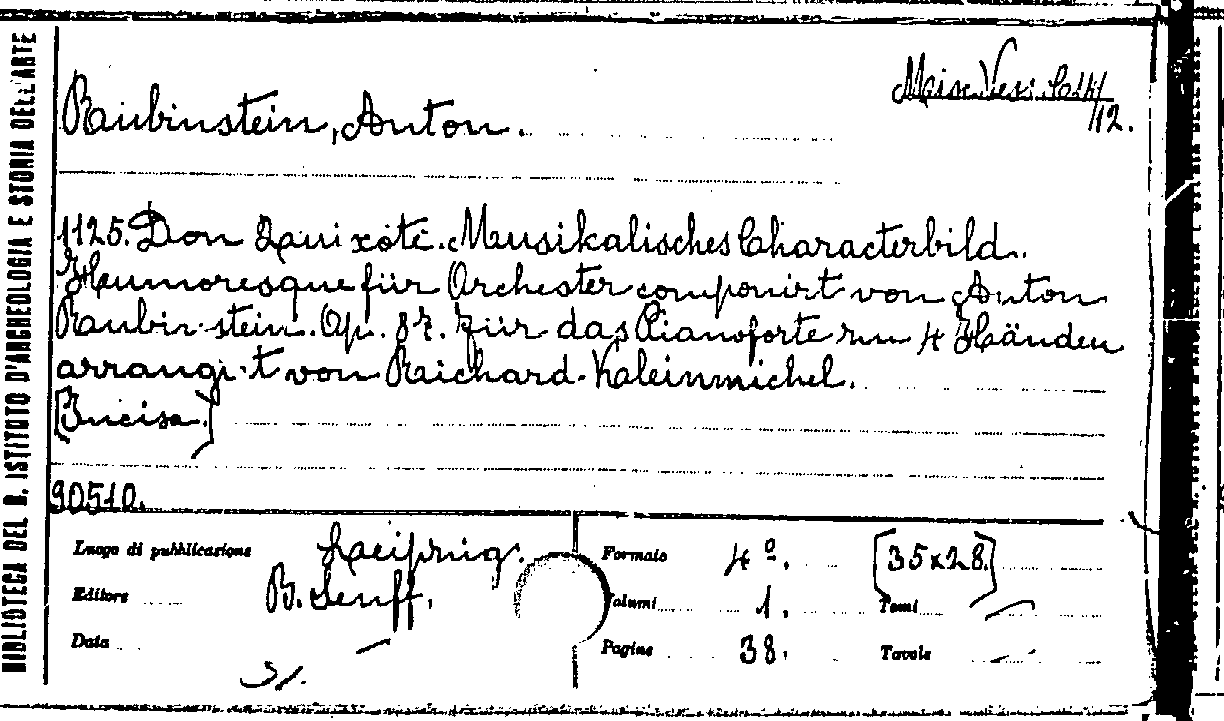 BIBLIOTECA DEL R. ISTITUTO D'ARCHEOLOGIA E STORIA DELL'ARTE
Rubinstein, Anton.
12.
1125. Don Quixote. Musikalisches Characterbild.
Humoresque für Orchester componirt von Anton
Rubinstein. Op. 87. Für das Pianoforte zu 4 Händen
arrangi-t von Richard Kleinmichel.
[Incisa.]
90510.
Luogo di pubblicazione Leipzig. Formato 4º. [35x28.]
Editore B. Senff. Volumi 1. Tomi —
Data — Pagine 38. Tavole —